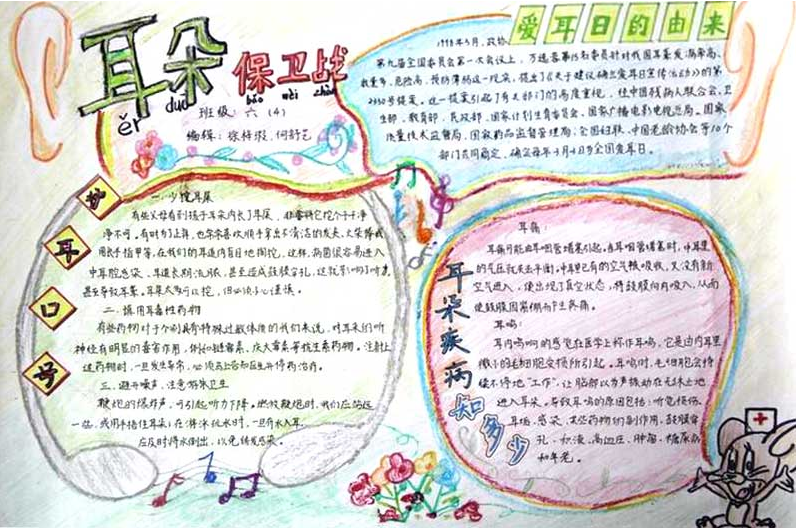 耳朵
保卫战
ěr duo
bǎo wèi zhàn
班级：六（4）
编辑：徐梓淑，何舒艺
爱耳日的由来
1998年3月，政协
第九届全国委员会第一次会议上，万选蓉等15名委员针对我国耳聋发病率高、
数量多、危险高、预防薄弱这一现实，提出了《关于建议确立爱耳日宣传活动》的第
2330号提案。这一提案引起了有关部门的高度重视。经中国残疾人联合会，卫
生部、教育部、民政部、国家计划生育委员会、国家广播电影电视总局、国家
质量技术监督局、国家药品监督管理局、全国妇联、中国老龄协会等10个
部门共同商定，确立每年3月3日为全国爱耳日。
护耳口号
一、少挖耳屎
有些父母看到孩子耳朵内长了耳屎，非要将它挖个干干净
净不可。有时为了止痒，也常常喜欢顺手拿出不清洁的发夹、火柴棒或
用长手指甲等，在我们的耳道内盲目地掏挖，这样，病菌很容易进入
中耳腔感染、耳道长期流脓，甚至造成鼓膜穿孔，这就影响了听觉
甚至导致耳聋。耳屎大多可以挖，但必须小心谨慎。
二、慎用耳毒性药物
有些药物对于个别具有特殊过敏体质的我们来说，对耳朵的听
神经有明显的毒害作用，例如链霉素、庆大霉素等抗生素药物。注射上
述药物时，一旦发生异常，必须马上告知医生并停药治疗。
三、避开噪声，注意游泳卫生
鞭炮的爆炸声，可引起听力下降。燃放鞭炮时，我们应站远
一些，或用手捂住耳朵；在游泳玩水时，一旦有水入耳，
应及时将水倒出，以免诱发感染。
耳朵疾病知多少
耳痛：
耳痛可能由耳咽管堵塞引起。当耳咽管堵塞时，中耳里
的气压就失去平衡，中耳里已有的空气被吸收，又没有新
空气进入，便出现了真空状态，将鼓膜向内吸入，从而
使鼓膜因紧绷而产生疼痛。
耳鸣：
耳内鸣响的感觉在医学上称作耳鸣，它是由内耳里
微小的毛细胞受损所引起。耳鸣时，毛细胞会持
续不停地“工作”，让脑部以为声振动在无休止地
进入耳朵。导致耳鸣的原因包括：听觉损伤、
耳垢、感染、某些药物的副作用、鼓膜穿
孔、积液、高血压、肿瘤、糖尿病
和年老。